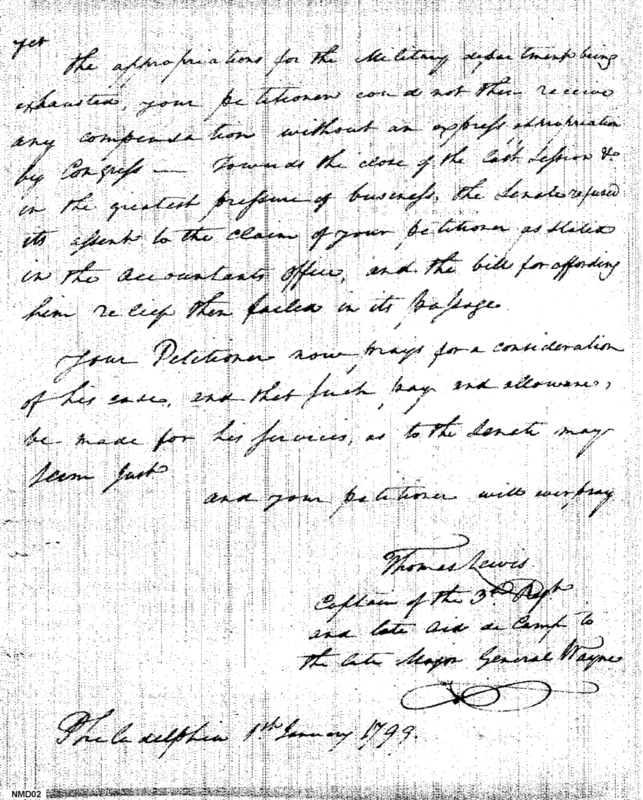 yet
the appropriations for the Military department being
exhausted, your petitioner could not then receive
any compensation without an express appropriation
by Congress — Towards the close of the last Session &c
in the greatest pressure of business, the Senate refused
its assent to the claim of your petitioner as stated
in the accountants office, and the bill for affording
him relief then failed in its passage
Your Petitioner now prays for a consideration
of his case, and that such pay and allowances,
be made for his services, as to the Senate may
seem Just
and your petitioner will ever pray
Thomas Lewis
Captain of the 3rd Regt
and late Aid de Camp to
the late Major General Wayne
Philadelphia 1st January 1799.
NMD02